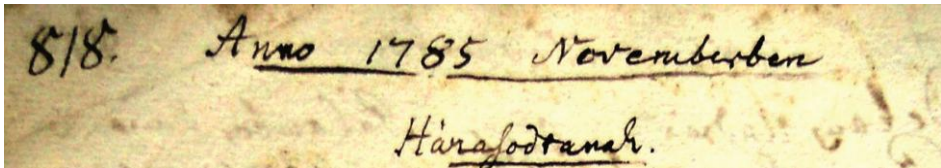 818. Anno 1785 Novemberben
Házasodtanak.